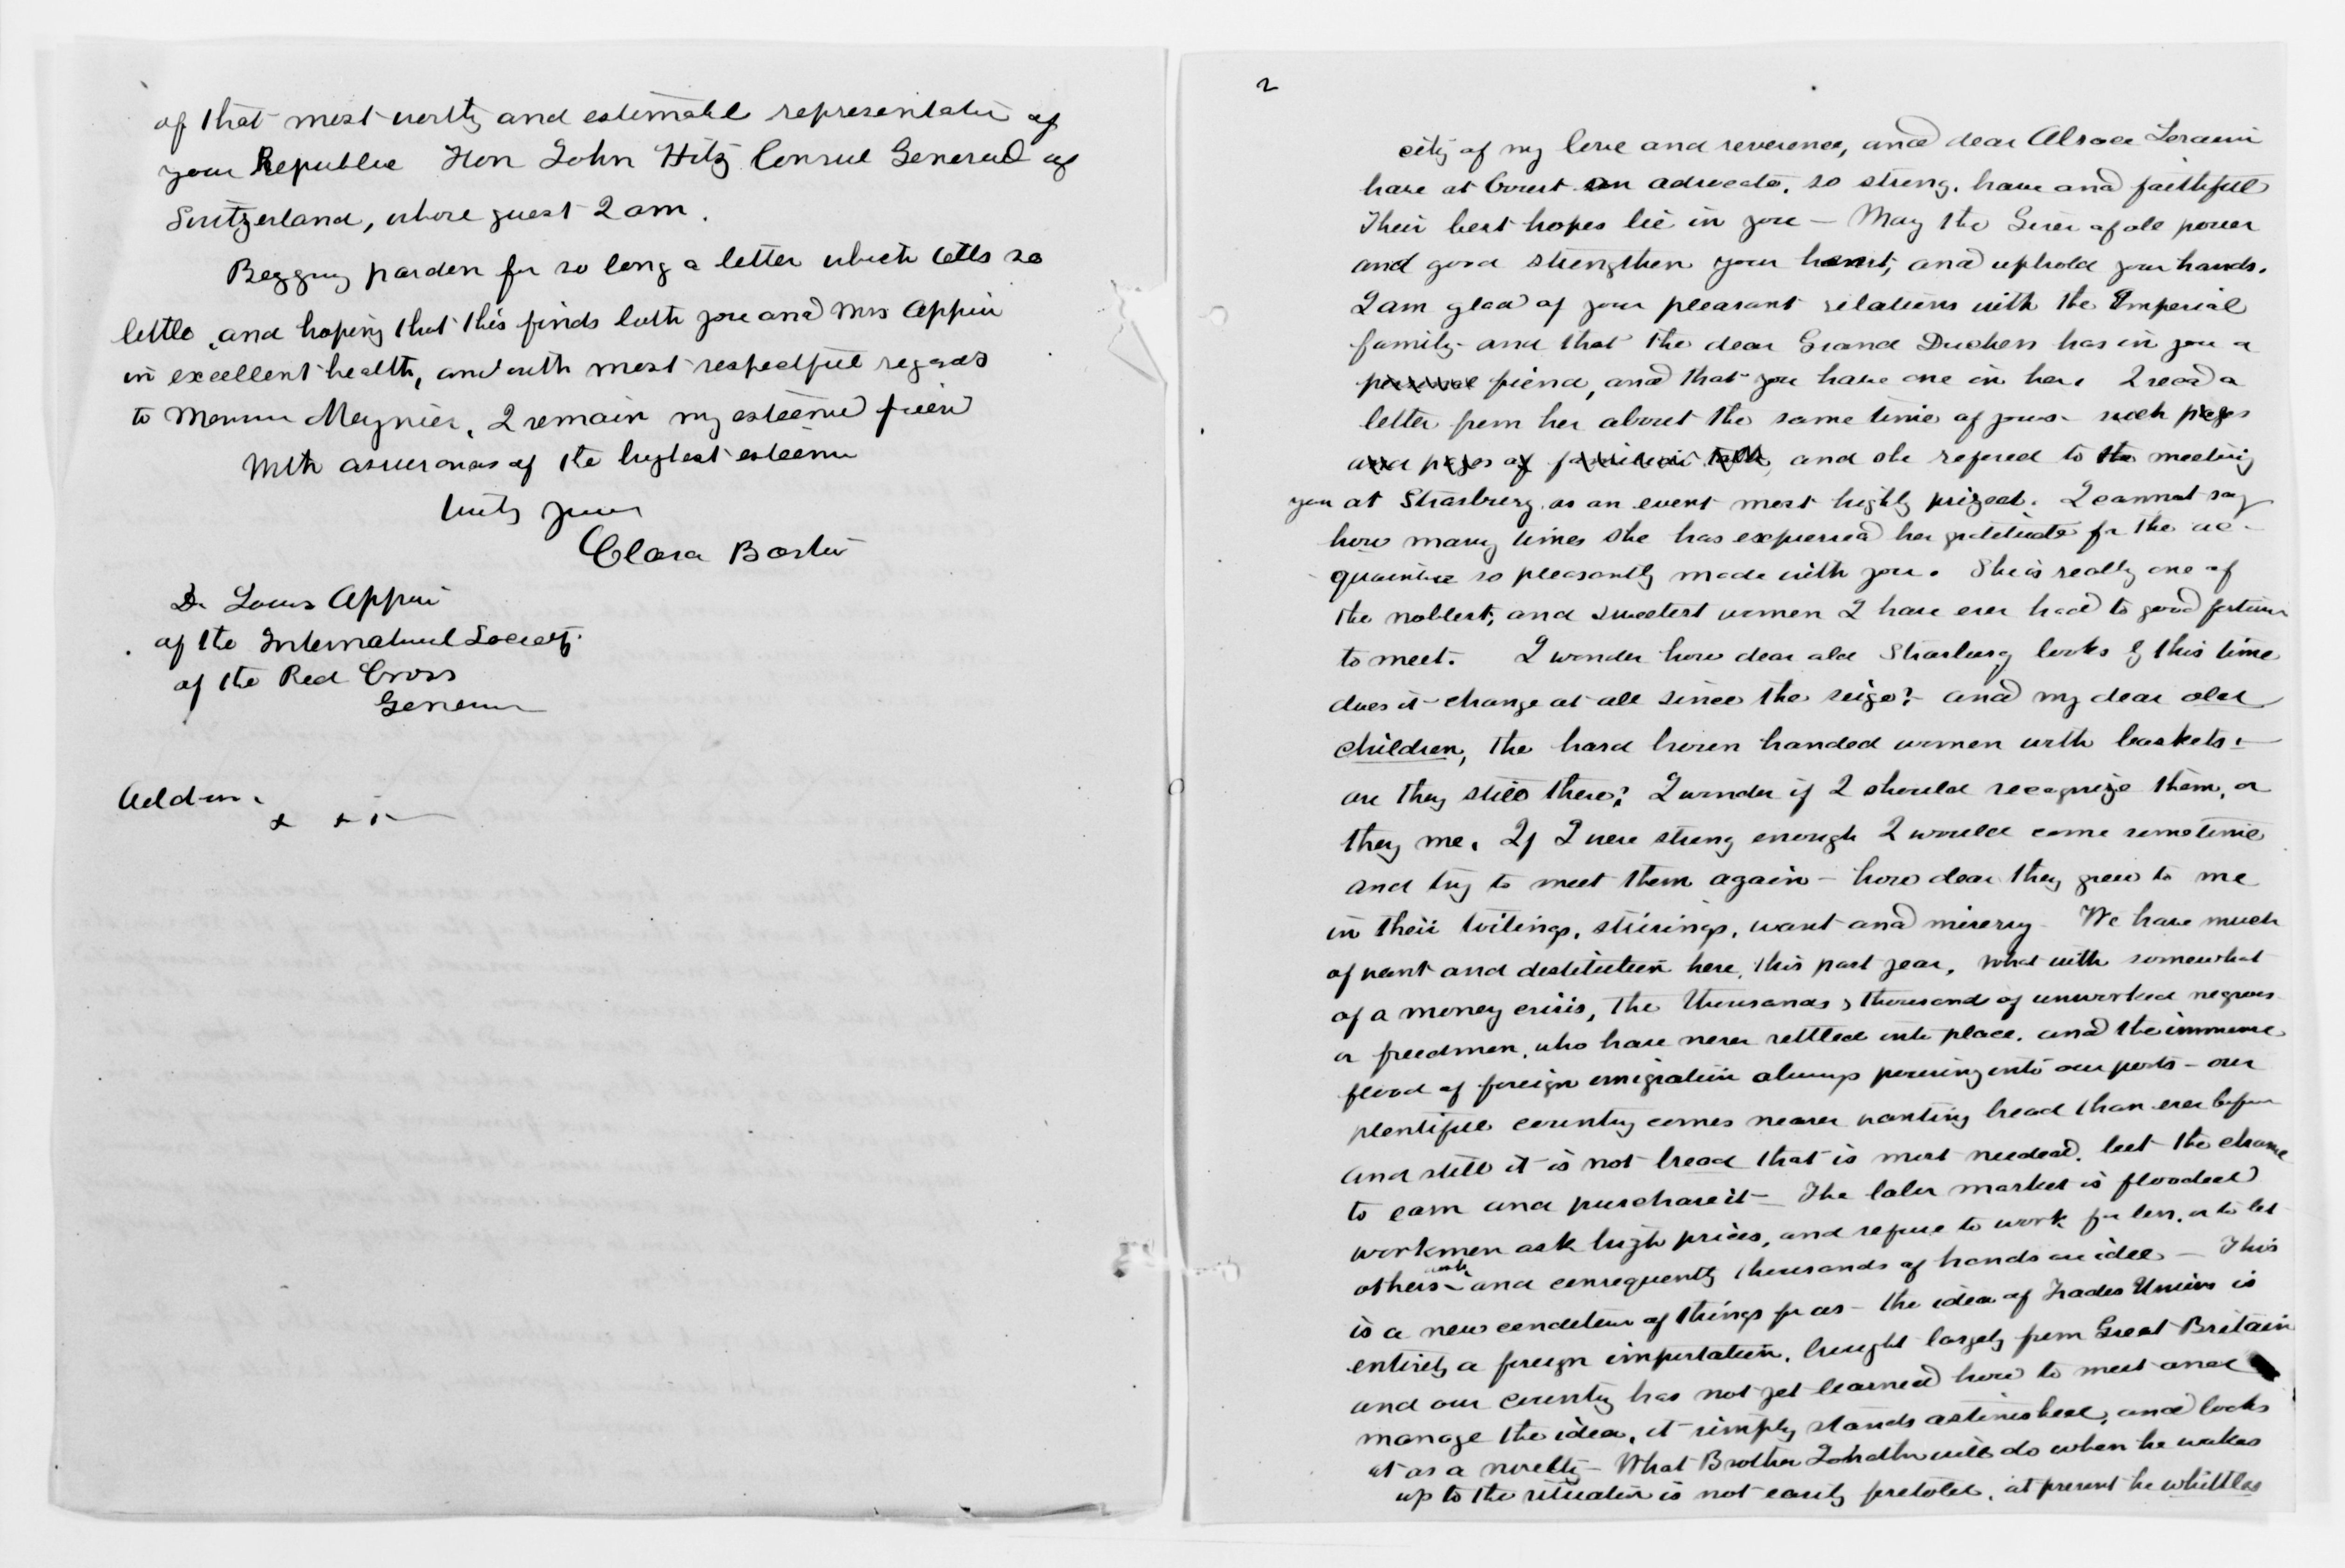 of that most worthy and estimable representative of
your Republic Hon John Hitz Consul General of
Switzerland, whose guest I am.
Begging pardon for so long a letter which tells so
little, and hoping that this finds both you and Mrs Appia
in excellent health, and with most respectful regards
to Monsieur Moynier, I remain my esteemed friend
With assurances of the highest esteem
Truly yours
Clara Barton
Dr Louis Appia
of the International Society
of the Red Cross
Geneva
Address.
2
city of my love and reverence, and dear Alsace Loraine
have at Court an advocate, so strong, brave and faithful
Their best hopes lie in you — May the Giver of all power
and good strengthen your heart, and uphold your hands.
I am glad of your pleasant relations with the Imperial
family and that the dear Grand Duchess has in you a
personal friend, and that you have one in her. I read a
letter from her about the same time of yours — such pages
and pages of and she refered to the meeting
you at Strasburg as an event most highly prized. I cannot say
how many times she has expressed her gratitude for the ac-
quaintance so pleasantly made with you. She is really one of
the noblest, and sweetest women I have ever had to good fortune
to meet. I wonder how dear old Strasburg looks by this time
does it change at all since the seige? and my dear old
children, the hard brown handed women with baskets. —
are they still there? I wonder if I should recognize them, or
they me. If I were strong enough I would come sometime
and try to meet them again — how dear they grew to me
in their toilings, strivings, want and misery — We have much
of want and destitution here, this past year, what with somewhat
of a money crisis, the thousands & thousands of unworked negroes
or freedmen, who have never settled into place, and the immense
flood of foreign emigration always pouring into our ports — our
plentiful country comes nearer wanting bread than ever before
and still it is not bread that is most needed, but the chance
to earn and purchase it — The labor market is flooded
workmen ask high prices, and refuse to work for less, or to let
others work and consequently thousands of hands are idle — This
is a new condition of things for us — the idea of Trades Unions is
entirely a foreign importation, brought largely from Great Britain
and our country has not yet learned how to meet and
manage the idea, it simply stands astonished, and looks
at as a novelty — What Brother Jonathan will do when he wakes
up to the situation is not easily foretold, at present he whittles